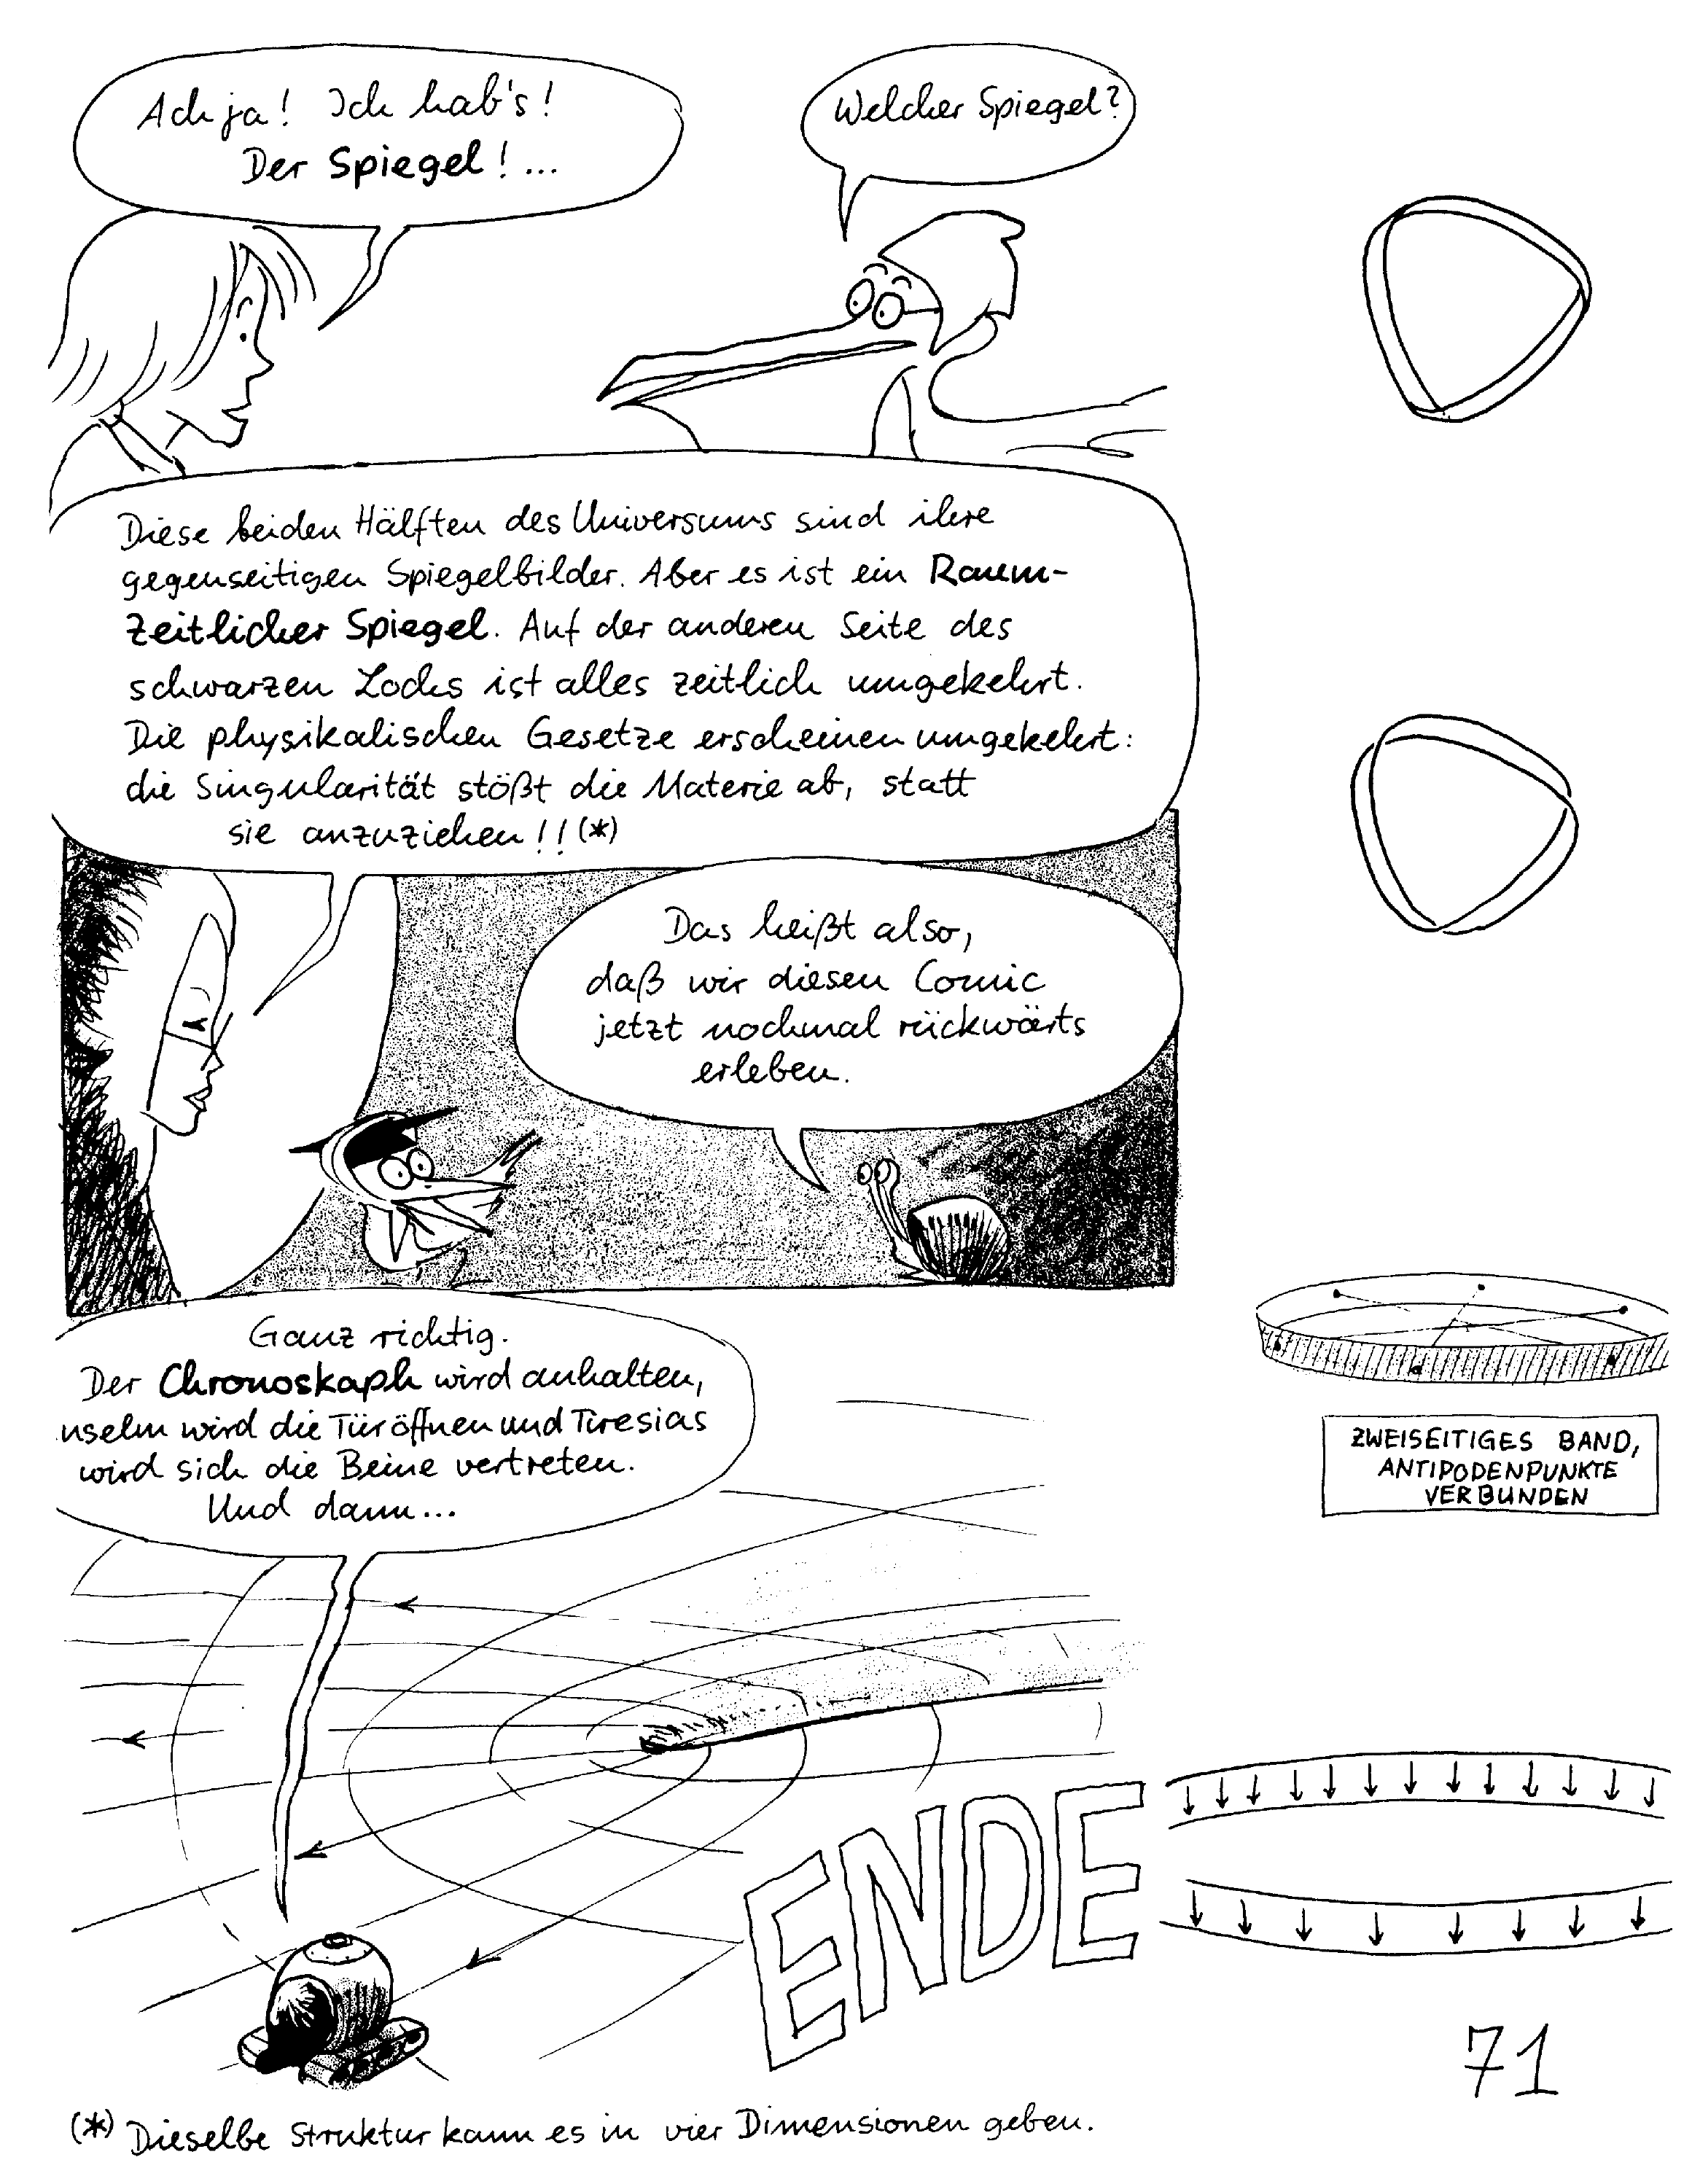 Ach ja! Ich hab's!
Der Spiegel!...
Welcher Spiegel?
Diese beiden Hälften des Universums sind ihre
gegenseitigen Spiegelbilder. Aber es ist ein Raum-
Zeitlicher Spiegel. Auf der anderen Seite des
schwarzen Lochs ist alles zeitlich umgekehrt.
Die physikalischen Gesetze erscheinen umgekehrt:
die Singularität stößt die Materie ab, statt
sie anzuziehen!! (*)
Das heißt also,
daß wir diesen Comic
jetzt nochmal rückwärts
erleben.
Ganz richtig.
Der Chronoskaph wird anhalten,
nselm wird die Tür öffnen und Tiresias
wird sich die Beine vertreten.
Und dann...
ZWEISEITIGES BAND,
ANTIPODENPUNKTE
VERBUNDEN
ENDE
71
(*) Dieselbe Struktur kann es in vier Dimensionen geben.